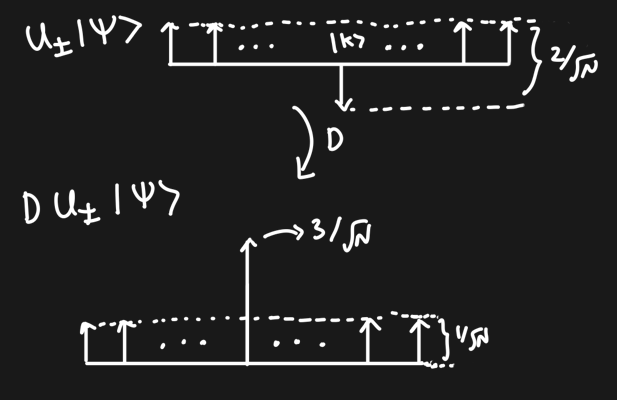 U± |Ψ⟩
... |k⟩ ...
2/√N
D
D U± |Ψ⟩
3/√N
... ...
1/√N